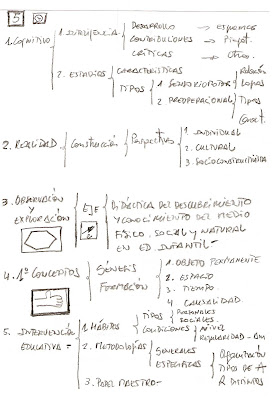 5
DESARROLLO → Esquemas
1. COGNITIVO 1. INTELIGENCIA CONTRIBUCIONES → Piaget
CRÍTICAS → Otros
2. ESTADIOS CARACTERÍSTICAS
TIPOS 1. SENSORIOMOTOR
2. PREOPERACIONAL Tipos
Caract.
2. REALIDAD Construcción Perspectivas 1. INDIVIDUAL
2. CULTURAL
3. SOCIOCONSTRUCTIVISTA
3. OBSERVACIÓN Y EXPLORACIÓN EJE DIDÁCTICA DEL DESCUBRIMIENTO
Y CONOCIMIENTO DEL MEDIO
FÍSICO, SOCIAL Y NATURAL
EN ED. INFANTIL-
4. 1os CONCEPTOS GÉNESIS FORMACIÓN 1. OBJETO PERMANENTE
2. ESPACIO
3. TIEMPO
4. CAUSALIDAD
5. INTERVENCIÓN EDUCATIVA = 1. HÁBITOS TIPOS PERSONALES
SOCIALES
CONDICIONES NIVEL
REGULARIDAD -
2. METODOLOGÍAS GENERALES
ESPECÍFICAS Organización
TIPOS DE A
R DISTINTOS
3. PAPEL MAESTRO-